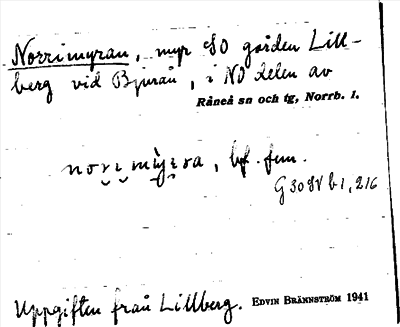 Norrimyran, myr SO gården Lill-
berg vid Bjurån, i NO delen av
Råneå sn och tg, Norrb. l.
bf. fem.
G 30 SV b 1, 216
Uppgiften från Lillberg. EDVIN BRÄNNSTRÖM 1941